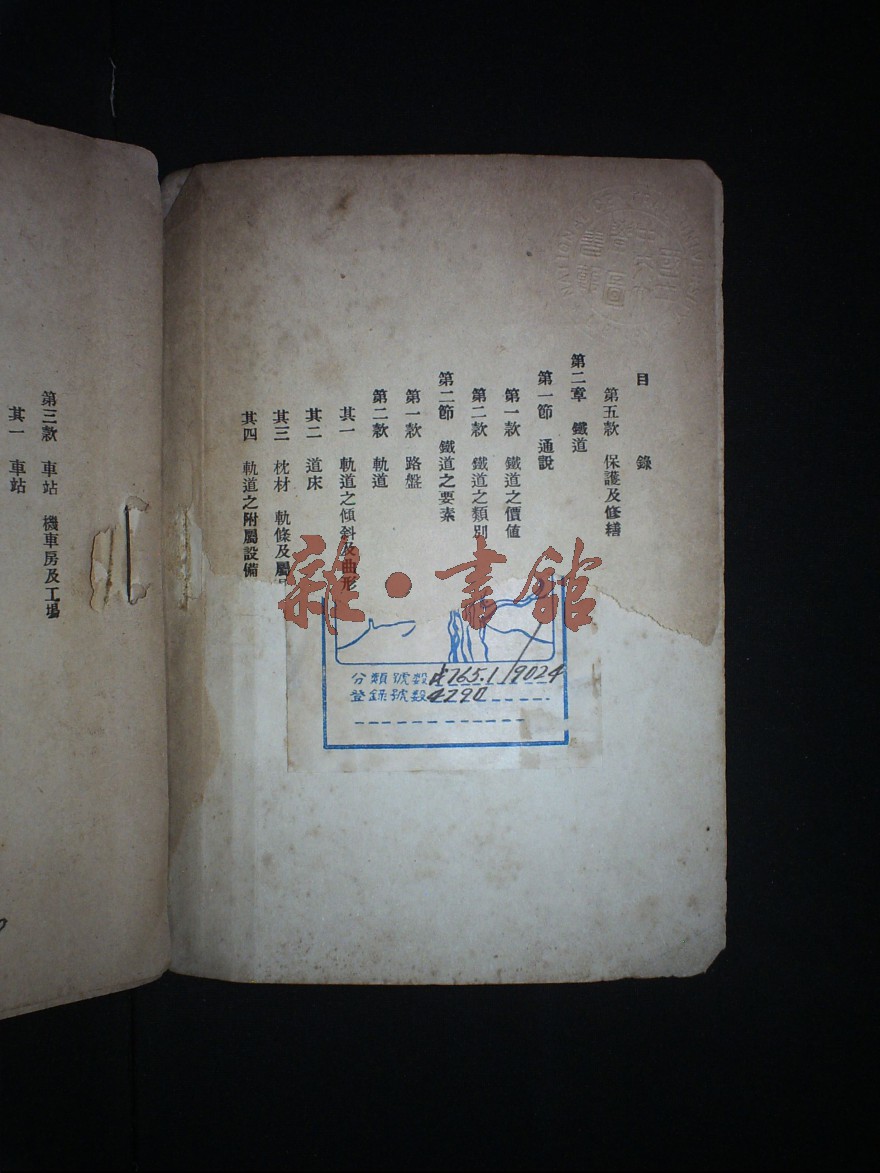 目錄
第五款 保護及修繕
第二章 鐵道
第一節 通說
第一款 鐵道之價値
第二款 鐵道之類別
第二節 鐵道之要素
第一款 路盤
第二款 軌道
其一 軌道之傾斜及曲形
其二 道床
其三 枕材 軌條及屬
其四 軌道之附屬設備
第三款 車站 機車房及工場
其一 車站
雜·書館
分類號數 765.1/9024
登錄號數 4290